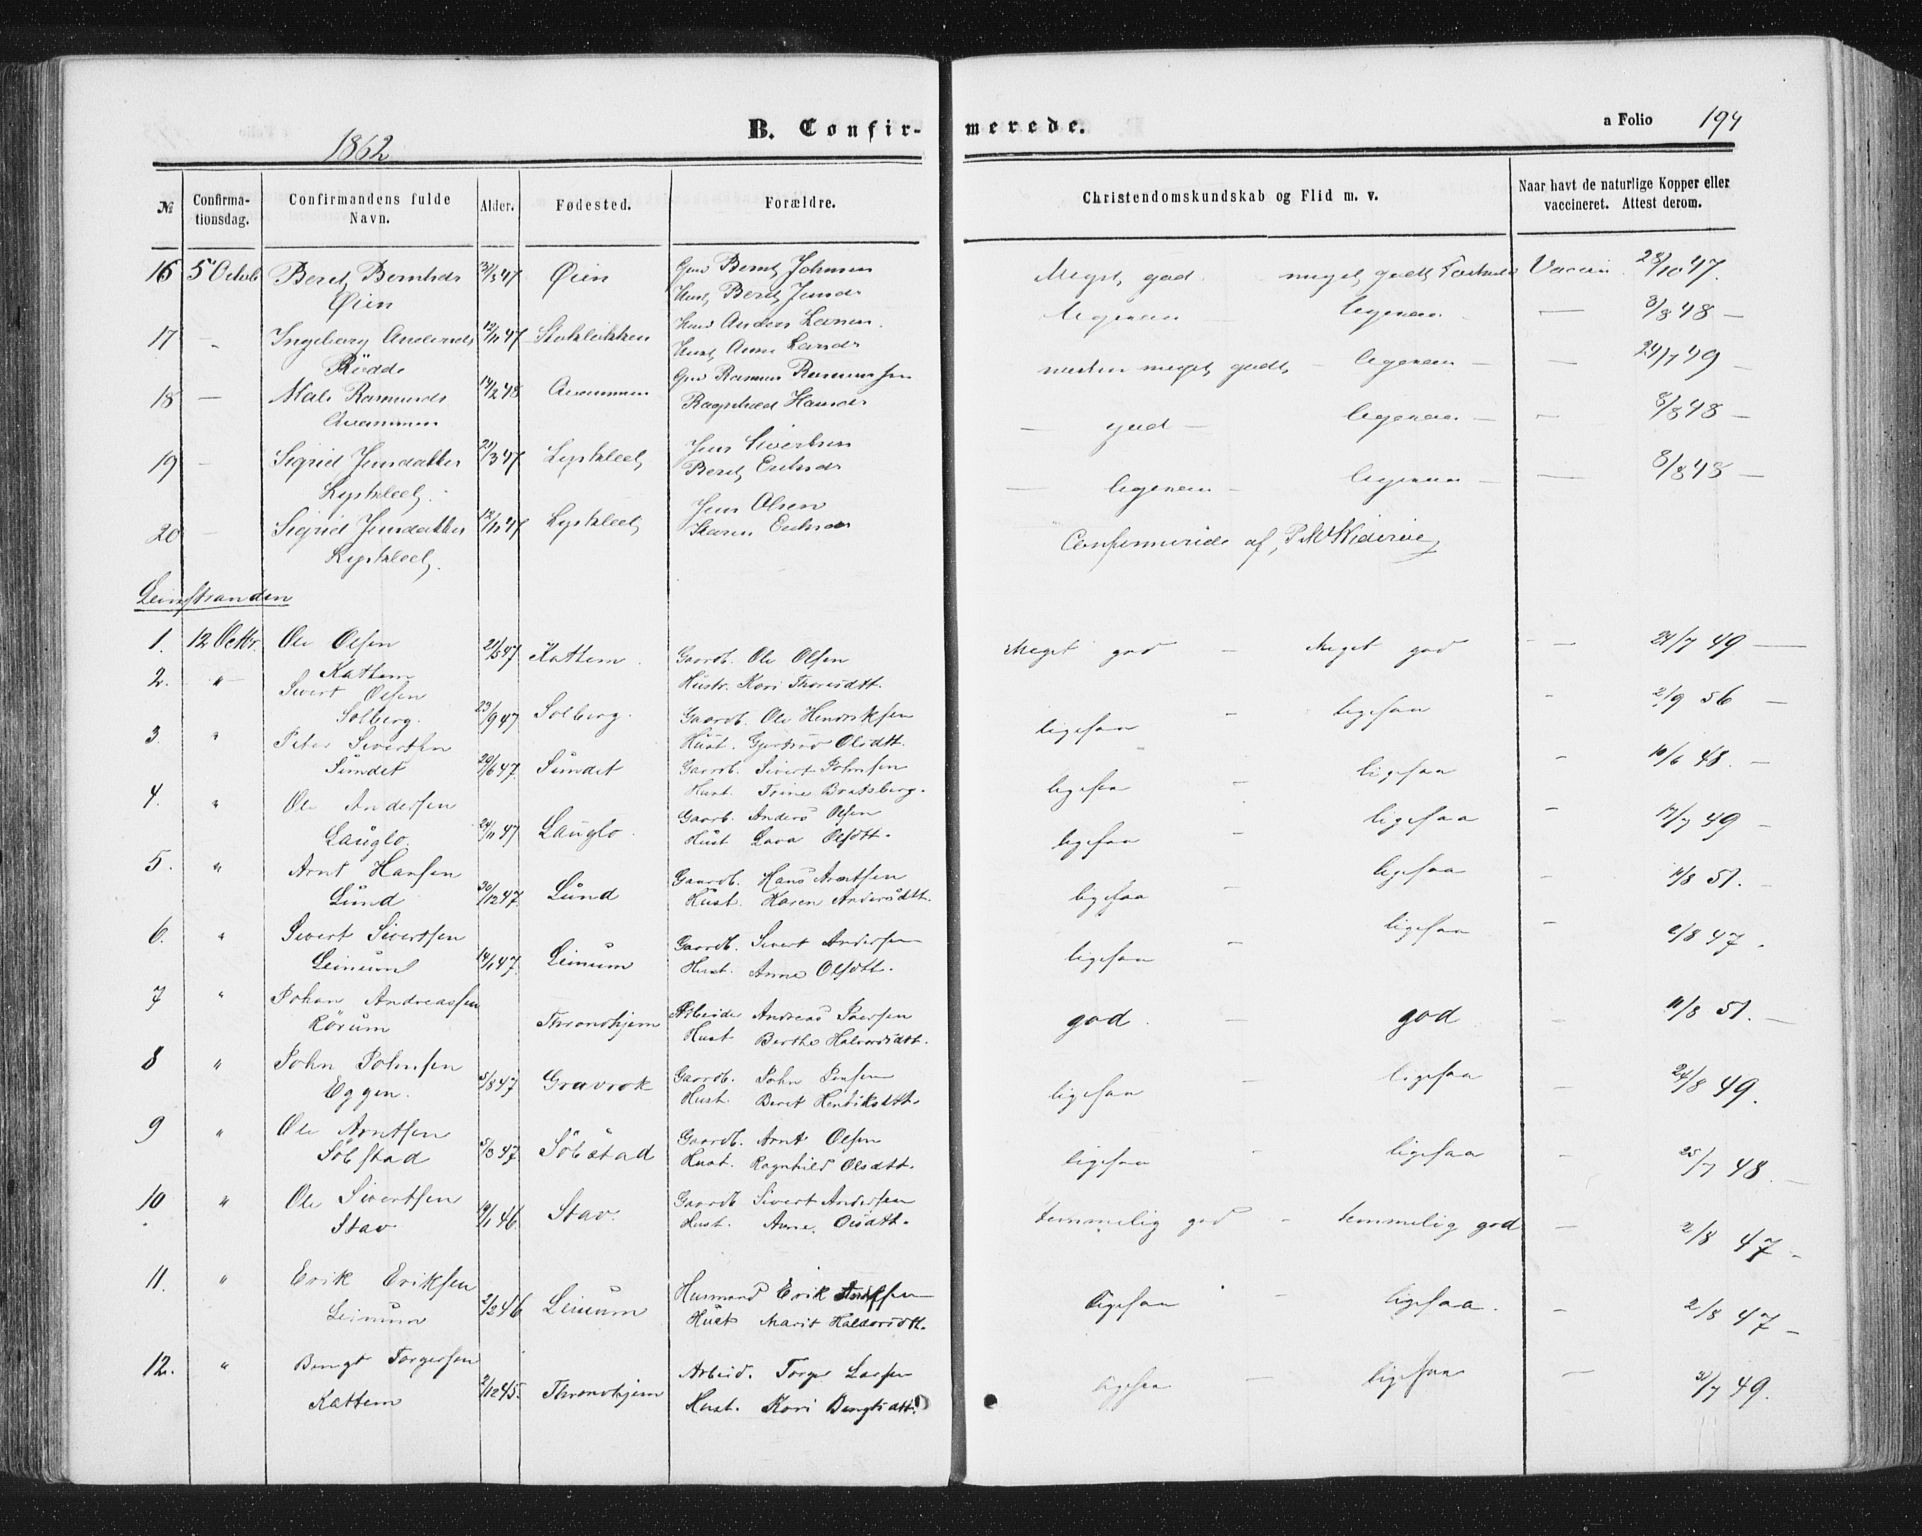 1862
B. Confir-
merede.
a Folio 194
№
Confirma-
tionsdag.
Confirmandens fulde
Navn.
Alder.
Fødested.
Forældre.
Christendomskundskab og Flid m. v.
Naar havt de naturlige Kopper eller
vaccineret. Attest derom.
16 5 Octob Beret Berntsdr 47 Øien Bernt Johnsen Meget god meget god 28/10 47.
Øien Beret Jensdr
17 - Ingeborg Andersdr 12/11 47 Anders Larsen ligesaa ligesaa — 3/8 48 —
Rödde Anne Larsdr
18 — Rasmusdr 14/2 48 Rasmus Rasmussen næsten meget godt - ligesaa — 24/7 49 —
Ragnhild Hansdr
19 - Sigrid Jensdatter 21/3 47 Jens Sivertsen — god — ligesaa — 8/8 48 —
Beret Erichsdr
20 — Sigrid Jensdatter 12/11 47 Jens Olsen — ligesaa — ligesaa — 8/8 48 —
Karen Erichsdr
Confirmerede af
Leinstranden
1. 12 Octbr. Ole Olsen 21/5 47 Kattem. Gaardb. Ole Olsen Meget god — Meget god — 24/7 49 —
Kattem Hustr. Kari Thoresdtt.
2. " Sivert Olsen 23/9 47 Solberg. Gaardb. Ole Henriksen ligesaa - ligesaa - 2/9 56 —
Solberg. Hust. Gjertrud Olsdtt.
3. " Peter Sivertsen 29/6 47. Sundet Gaardb. Sivert Johnsen ligesaa - ligesaa - 10/6 48. —
Sundet Hust. Trine Bratsberg.
4. " Ole Andersen 24/11 47 Lauglo. Gaardb. Anders Olsen ligesaa - ligesaa - 17/7 49 —
Lauglo. Hust Olsdtt.
5. " Arnt Hansen 30/12 47. Lund Gaardb. Hans Arntsen ligesaa - ligesaa 11/8 51. —
Lund Hust. Karen Andersdtt.
6. " Sivert Sivertsen 14/1 47. Leinum Gaardb. Sivert Andersen ligesaa - ligesaa - 2/8 47.
Leinum Hust. Anne Olsdtt.
7 " Johan Andreassen Throndhjem Arbeider Andreas god. - god 11/8 51. —
Rörum Hust Berthe Halvorsdtt.
8 " John Johnsen 5/8 47 Gravrok Gaardb. John Jonsen ligesaa - ligesaa - 24/8 49.
Eggen. Hust. Beret Henriksdtt.
9 " Ole Arntsen 5/3 47 Söbstad Gaardb. Arnt Olsen ligesaa - ligesaa - 25/7 48. —
Söbstad Hust. Ragnhild Olsdtt.
10 " Ole Sivertsen 19/1 46 Stav. Gaardb Sivert Andersen temmelig god - temmelig god - 2/8 47 -
Stav Hust. Anne Olsdtt.
11. " Erik Eriksen 2/2 46 Leinum Husmand Erik ligesaa - ligesaa. 2/8 47 —
Leinum Hust Marit Haldorsdtt.
12. " Bengt Torgersen 2/12 45. Throndhjem Arbeid. Torger Larsen ligesaa - ligesaa - 31/7 49.
Kattem Hust. Kari Bengtsdtt.